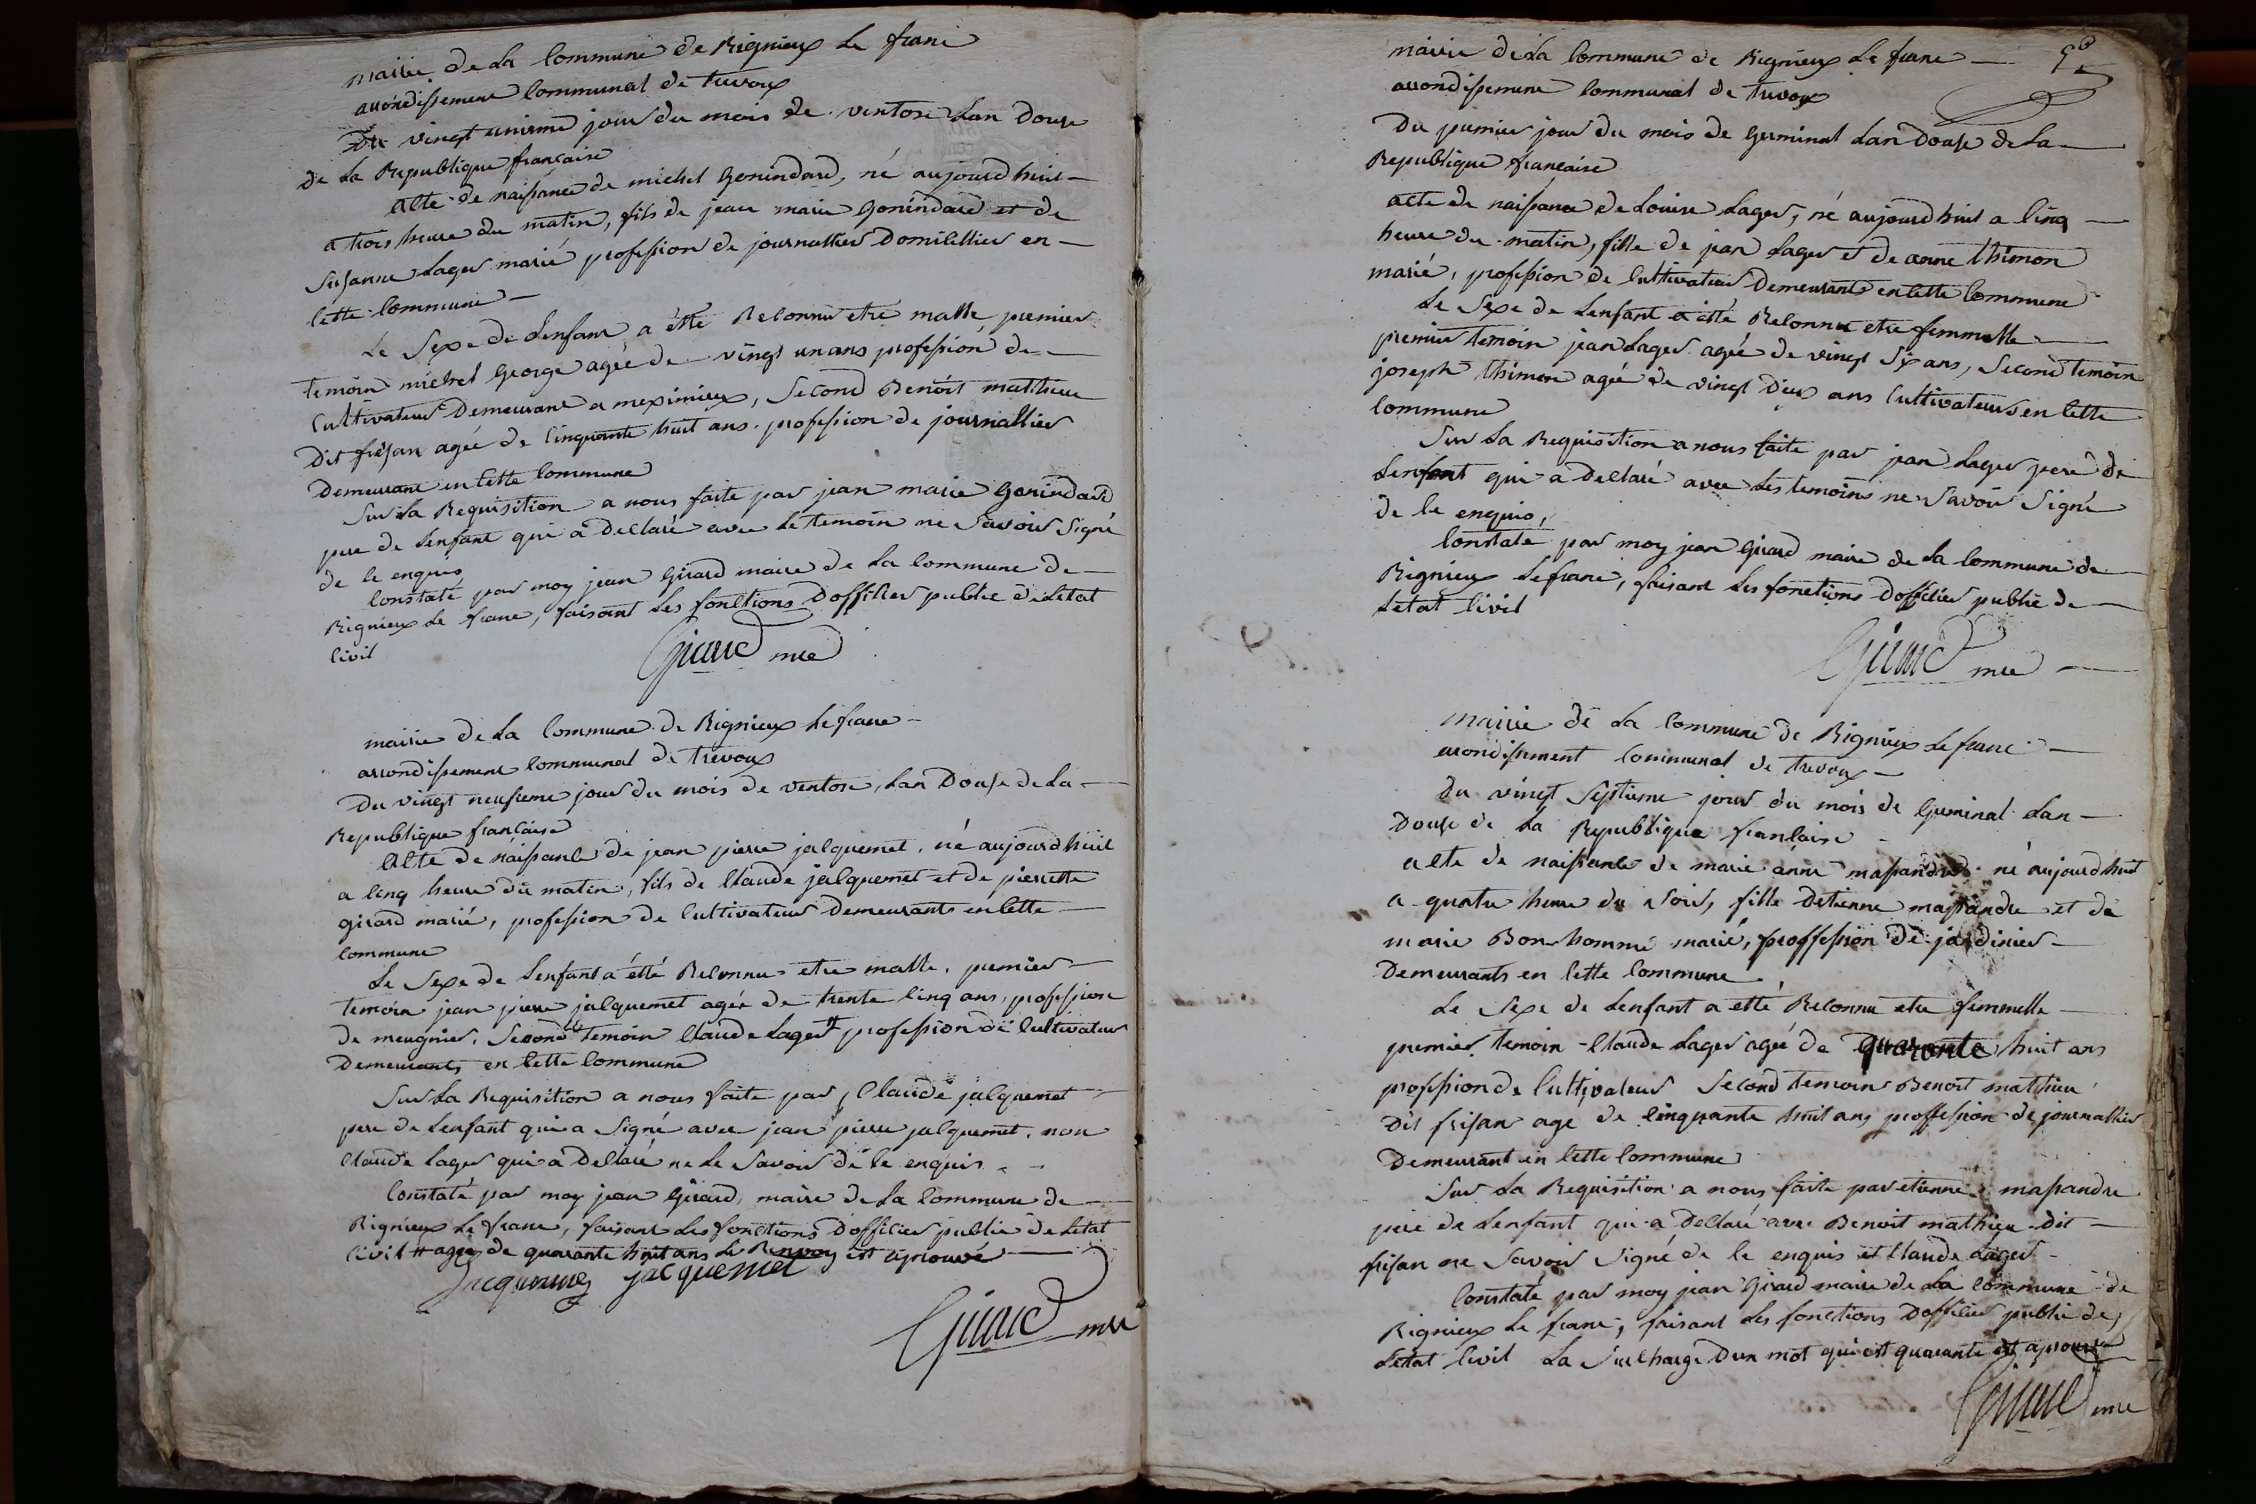 mairie de La Commune de Rignieux Le franc
arrondissement Communal de trevoux
Du vingt unieme jour du mois de ventose Lan Douse
de La Republique française
Acte de naissance de michel Gonindard, né aujourd huit
a trois heure du matin, fils de jean marie Gonindard et de
Susanne Lager marié profession de journallier Domicillier en
Cette Commune
Le Sexe de Lenfant a étté Reconnu etre malle, premier
temoin michel George agée de vingt un ans profession de
Cultivateur Demeurant a meximieux, Second Benoit matthieu
Dit frisan agée de Cinquante huit ans profession de journallier
Demeurant en Cette Commune
Sur La Requisition a nous faite par jean marie Gonindard
pere de Lenfant qui a Declaré avec Le temoin ne Savoir Signé
de Ce enquis
Constaté par moy jean Girard maire de La Commune de
Rignieux Le franc, faisant Les fonctions Dofficier public de Letat
Civil
Girard mre
mairie de La Commune de Rignieux Le franc
arrondissement Communal de trevoux
Du vingt neufieme jour du mois de ventose, Lan Douse de La
Republique française
Acte de naissance de jean pierre jacquemet, né aujourd huit
a Cinq heure du matin, fils de Claude jacquemet et de pierrette
girard marié, profession de Cultivateur Demeurants en Cette
Commune
Le Sexe de Lenfant a étté Reconnu etre malle, premier
temoin jean pierre jacquemet agée de trente Cinq ans, profession
de meugnier, Second temoin Claude Lager # profession de Cultivateur
Demeurants en Cette Commune
Sur La Requisition a nous faite par Claude jacquemet
pere de Lenfant qui a Signé avec jean pierre jacquemet, non
Claude Lager qui a Declaré ne Le Savoir de Ce enquis
Constaté par moy jean Girard, maire de La Commune de
Rignieux Le franc, faisant Les fonctions Dofficier public de Letat
Civil # agée de quarante huit ans Le Renvoy est aprouvé
Jacquemet jacquemet
Girard mre
mairie de La Commune de Rignieux Le franc
arrondissement Communal de trevoux
Du premier jour du mois de Germinal Lan Douse de La
Republique française
acte de naissance de Louise Lager, né aujourd huit a Cinq
heure du matin, fille de jean Lager et de anne thimon
marié, profession de Cultivateur Demeurants en Cette Commune
Le Sexe de Lenfant a étté Reconnu etre femmelle
premier temoin jean Lager agée de vingt Six ans, Second temoin
joseph thimon agée de vingt Deux ans Cultivateurs en Cette
Commune
Sur La Requisition a nous faite par jean Lager pere de
Lenfant qui a Declaré avec Les temoins ne Savoir Signé
de Ce enquis,
Constaté par moy jean Girard maire de La Commune de
Rignieux Le franc, faisant Les fonctions Dofficier public de
Letat Civil
Girard mre
mairie de La Commune de Rignieux Le franc
arondissement Communal de trevoux
Du vingt Septieme jour du mois de Germinal Lan
Douse de La Republique francaise
acte de naissance de marie anne massandre né aujourd huit
a quatre heure du Soir, fille Detienne massandre et de
marie Bonhomme marié, proffession de jardinier
Demeurants en Cette Commune
Le Sexe de Lenfant a etté Reconnu etre femmelle
premier temoin Claude Lager agée de quarante huit ans
profession de Cultivateur Second temoin Benoit matthieu
Dit frisan age de Cinquante huit ans proffession de journallier
Demeurant en Cette Commune
Sur La Requisition a nous faite par etienne massandre
pere de Lenfant qui a Declaré avec Benoit mathieu dit
frisan ne Savoir Signé de Ce enquis et Claude Lager
Constaté par moy jean Girard maire de La Commune de
Rignieux Le franc, faisant Les fonctions Dofficier public de
Letat Civil La Surcharge Dun mot qui est quarante est aprouvé
Girard mre